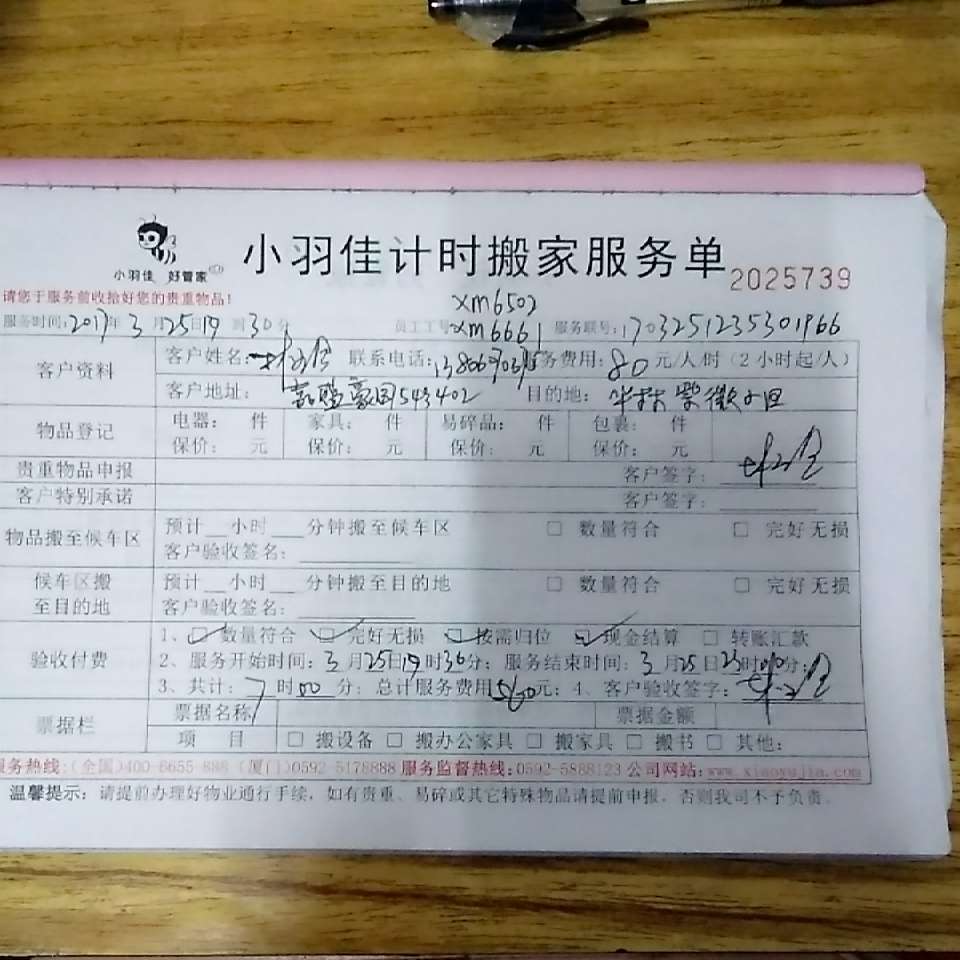 小羽佳 好管家
小羽佳计时搬家服务单 2025739
请您于服务前收拾好您的贵重物品！
xm6502
服务时间：2017年3月25日19时30分 员工工号：xm6661 服务联号：1703251235301966
客户资料 客户姓名： 联系电话： 服务费用：80元/人/时（2小时起/人）
客户地址： 543402 目的地：
物品登记 电器： 件 家具： 件 易碎品： 件 包裹： 件
保价： 元 保价： 元 保价： 元 保价： 元
贵重物品申报 客户签字：
客户特别承诺 客户签字：
物品搬至候车区 预计__小时___分钟搬至候车区 □ 数量符合 □ 完好无损
客户验收签名：
候车区搬至目的地 预计__小时___分钟搬至目的地 □ 数量符合 □ 完好无损
客户验收签名：
验收付费 1、☑数量符合 ☑完好无损 ☑按需归位 ☑现金结算 □ 转账汇款
2、服务开始时间：3月25日19时30分；服务结束时间：3月25日23时00分；
3、共计：7时00分；总计服务费用560元；4、客户验收签字：
票据栏 票据名称 票据金额
项 目 □ 搬设备 □ 搬办公家具 □ 搬家具 □ 搬书 □ 其他：
服务热线：(全国)400-6655-888 (厦门)0592-5178888 服务监督热线：0592-5888123 公司网站：www.xiaoyujia.com
温馨提示：请提前办理好物业通行手续，如有贵重、易碎或其它特殊物品请提前申报，否则我司不予负责。